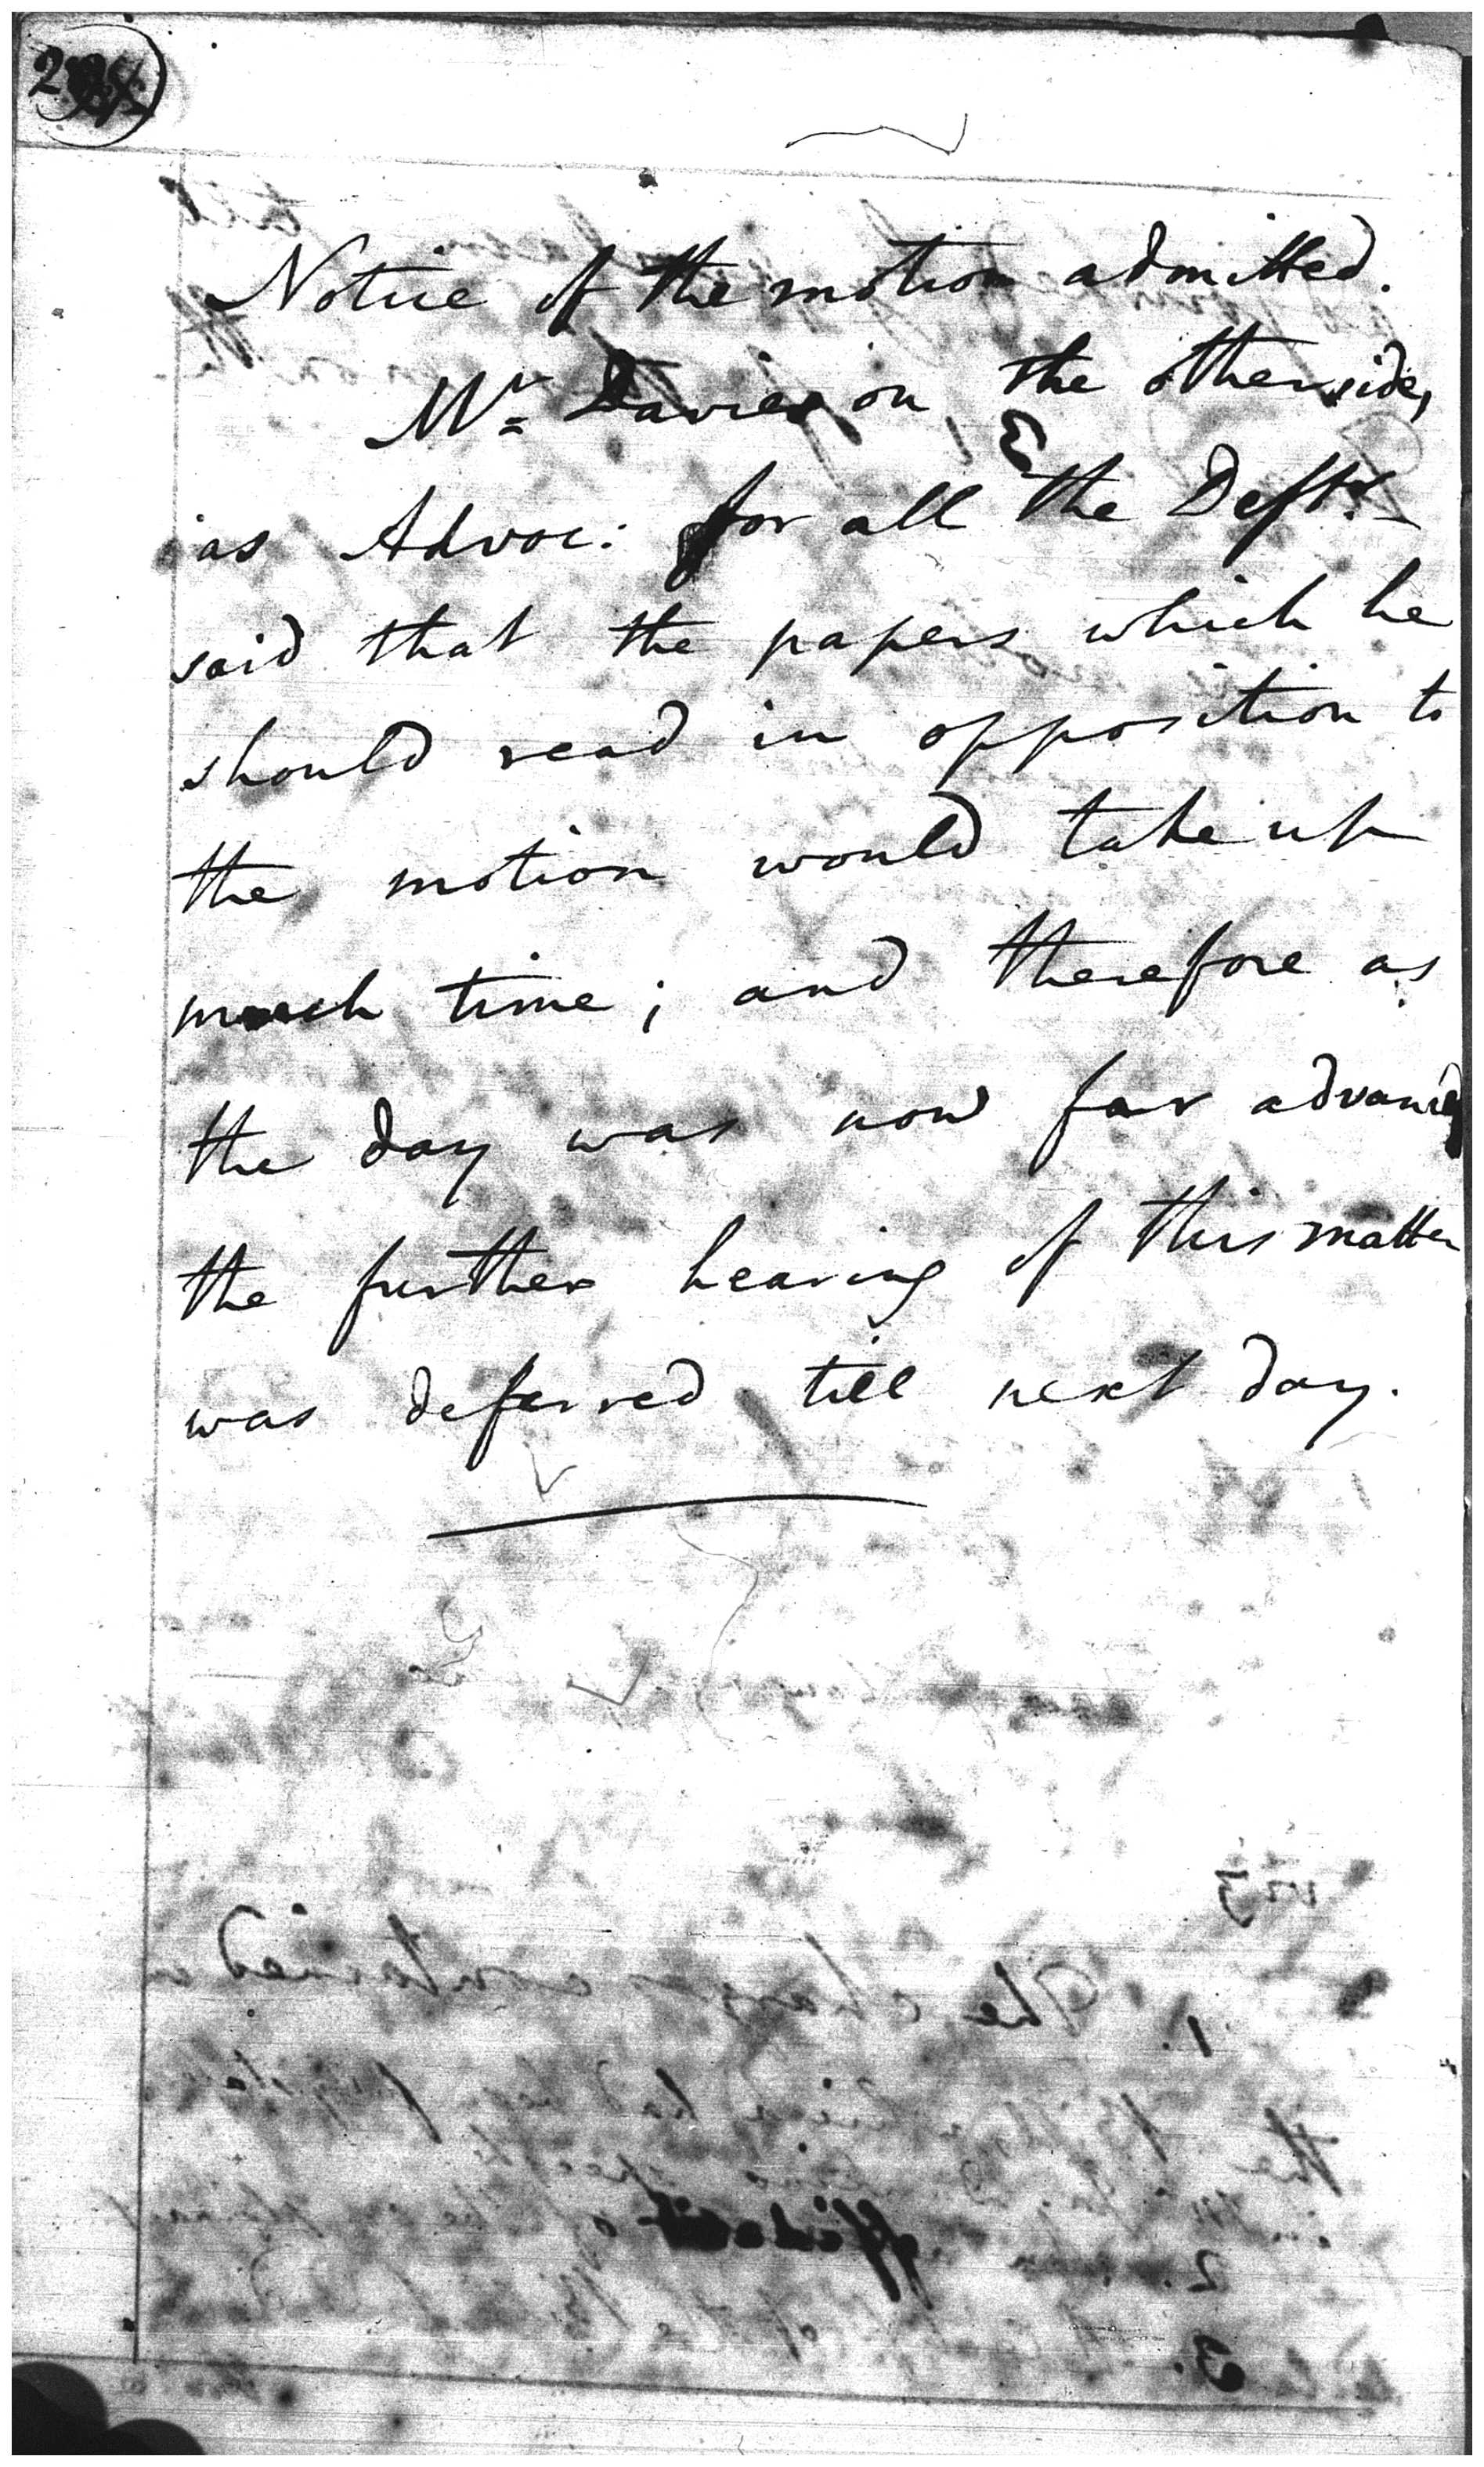 Notice of the motion admitted.
Mr Davies on the other side,
as Advoc: for all the Defts.
said that the papers which he
should read in opposition to
the motion would take up
much time; and therefore as
the day was now far advanced
the further hearing of this matter
was deferred till next day.